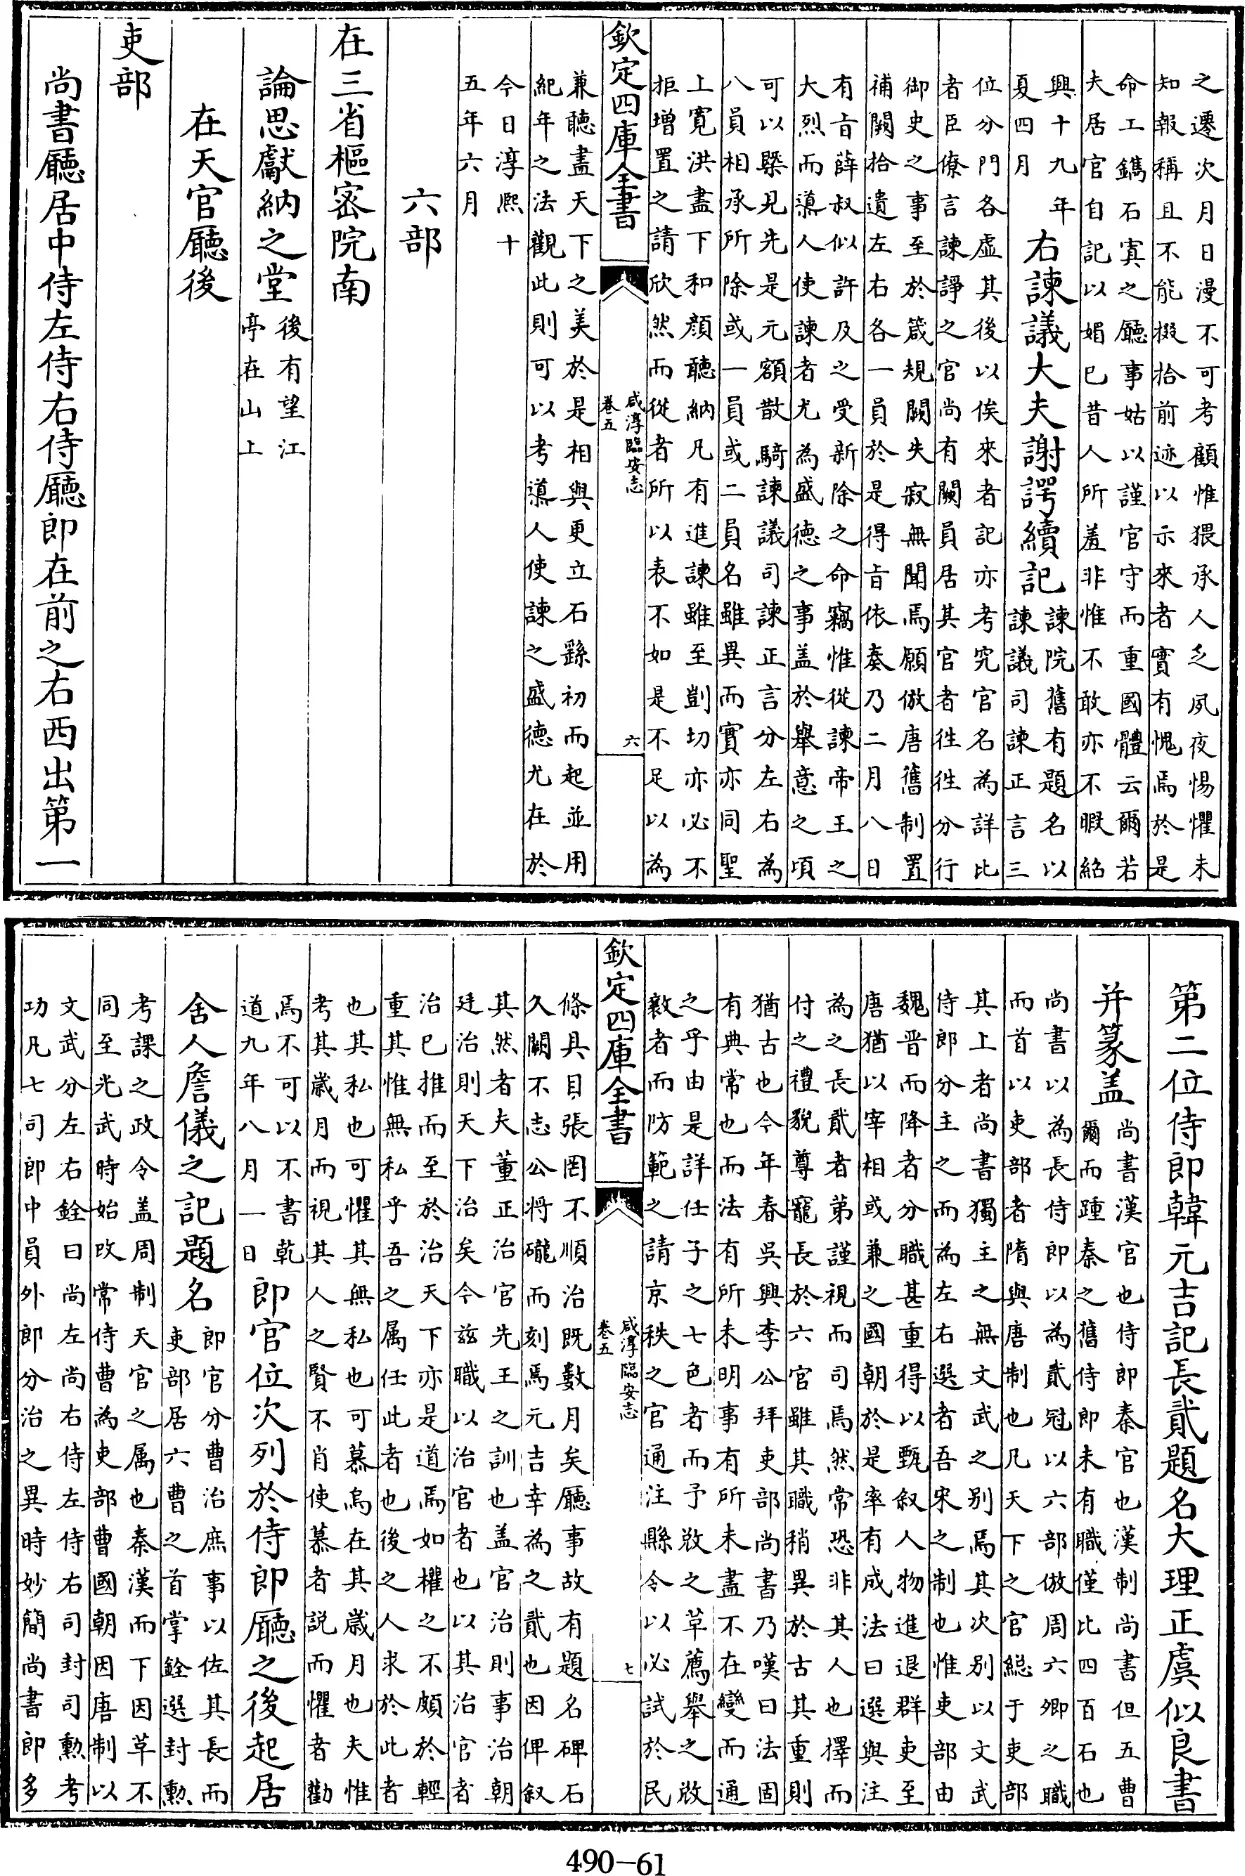 之遷次月日漫不可考顧惟猥承人乏夙夜惕懼未
知報稱且不能掇拾前迹以示來者實有愧焉於是
命工鐫石寘之廳事姑以謹官守而重國體云爾若
夫居官自記以媚巳昔人所羞非惟不敢亦不暇紹
興十九年
夏四月
右諫議大夫謝諤續記
諫院舊有題名以
諫議司諫正言三
位分門各虛其後以俟來者記亦考究官名為詳比
者臣僚言諫諍之官尚有闕員居其官者徃徃分行
御史之事至於箴規闕失寂無聞焉願倣唐舊制置
補闕拾遺左右各一員於是得旨依奏乃二月八日
有旨薛叔似許及之受新除之命竊惟從諫帝王之
大烈而導人使諫者尤為盛德之事盖於舉意之頃
可以槩見先是元額散騎諫議司諫正言分左右為
八員相承所除或一員或二員名雖異而實亦同聖
上寛洪盡下和顔聽納凡有進諫雖至剴切亦必不
拒增置之請欣然而從者所以表不如是不足以為
欽定四庫全書
咸淳臨安志
卷五
六
兼聽盡天下之美於是相與更立石繇初而起並用
紀年之法觀此則可以考導人使諫之盛德尤在於
今日淳熙十
五年六月
六部
在三省樞密院南
論思獻納之堂
後有望江
亭在山上
在天官廳後
吏部
尚書廳居中侍左侍右侍廳即在前之右西出第一
第二位侍郎韓元吉記長貳題名大理正虞似良書
并篆盖
尚書漢官也侍郎秦官也漢制尚書但五曹
爾而踵秦之舊侍郎未有職僅比四百石也
尚書以為長侍郎以為貳冠以六部倣周六卿之職
而首以吏部者隋與唐制也凡天下之官緫于吏部
其上者尚書獨主之無文武之别焉其次别以文武
侍郎分主之而為左右選者吾宋之制也惟吏部由
魏晋而降者分職甚重得以甄叙人物進退群吏至
唐猶以宰相或兼之國朝於是率有成法曰選與注
為之長貳者第謹視而司焉然常恐非其人也擇而
付之禮貌尊寵長於六官雖其職稍異於古其重則
猶古也今年春吳興李公拜吏部尚書乃嘆曰法固
有典常也而法有所未明事有所未盡不在變而通
之乎由是詳任子之七色者而予敚之草薦舉之敚
敹者而防範之請京秩之官通注縣令以必試於民
欽定四庫全書
咸淳臨安志
卷五
七
條具目張罔不順治既數月矣廳事故有題名碑石
久闕不志公将礲而刻焉元吉幸為之貳也因俾叙
其然者夫董正治官先王之訓也盖官治則事治朝
廷治則天下治矣今兹職以治官者也以其治官者
治巳推而至於治天下亦是道焉如權之不頗於輕
重其惟無私乎吾之属任此者也後之人求於此者
也其私也可懼其無私也可慕烏在其歳月也夫惟
考其歳月而視其人之賢不肖使慕者説而懼者勸
焉不可以不書乾
道九年八月一日
郎官位次列於侍郎廳之後起居
舍人詹儀之記題名
郎官分曹治庶事以佐其長而
吏部居六曹之首掌銓選封勲
考課之政令盖周制天官之属也秦漢而下因草不
同至光武時始改常侍曹為吏部曹國朝因唐制以
文武分左右銓曰尚左尚右侍左侍右司封司勲考
功凡七司郎中員外郎分治之異時妙簡尚書郎多
490-61